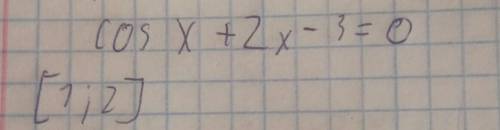 cos x + 2x - 3 = 0
[1; 2]